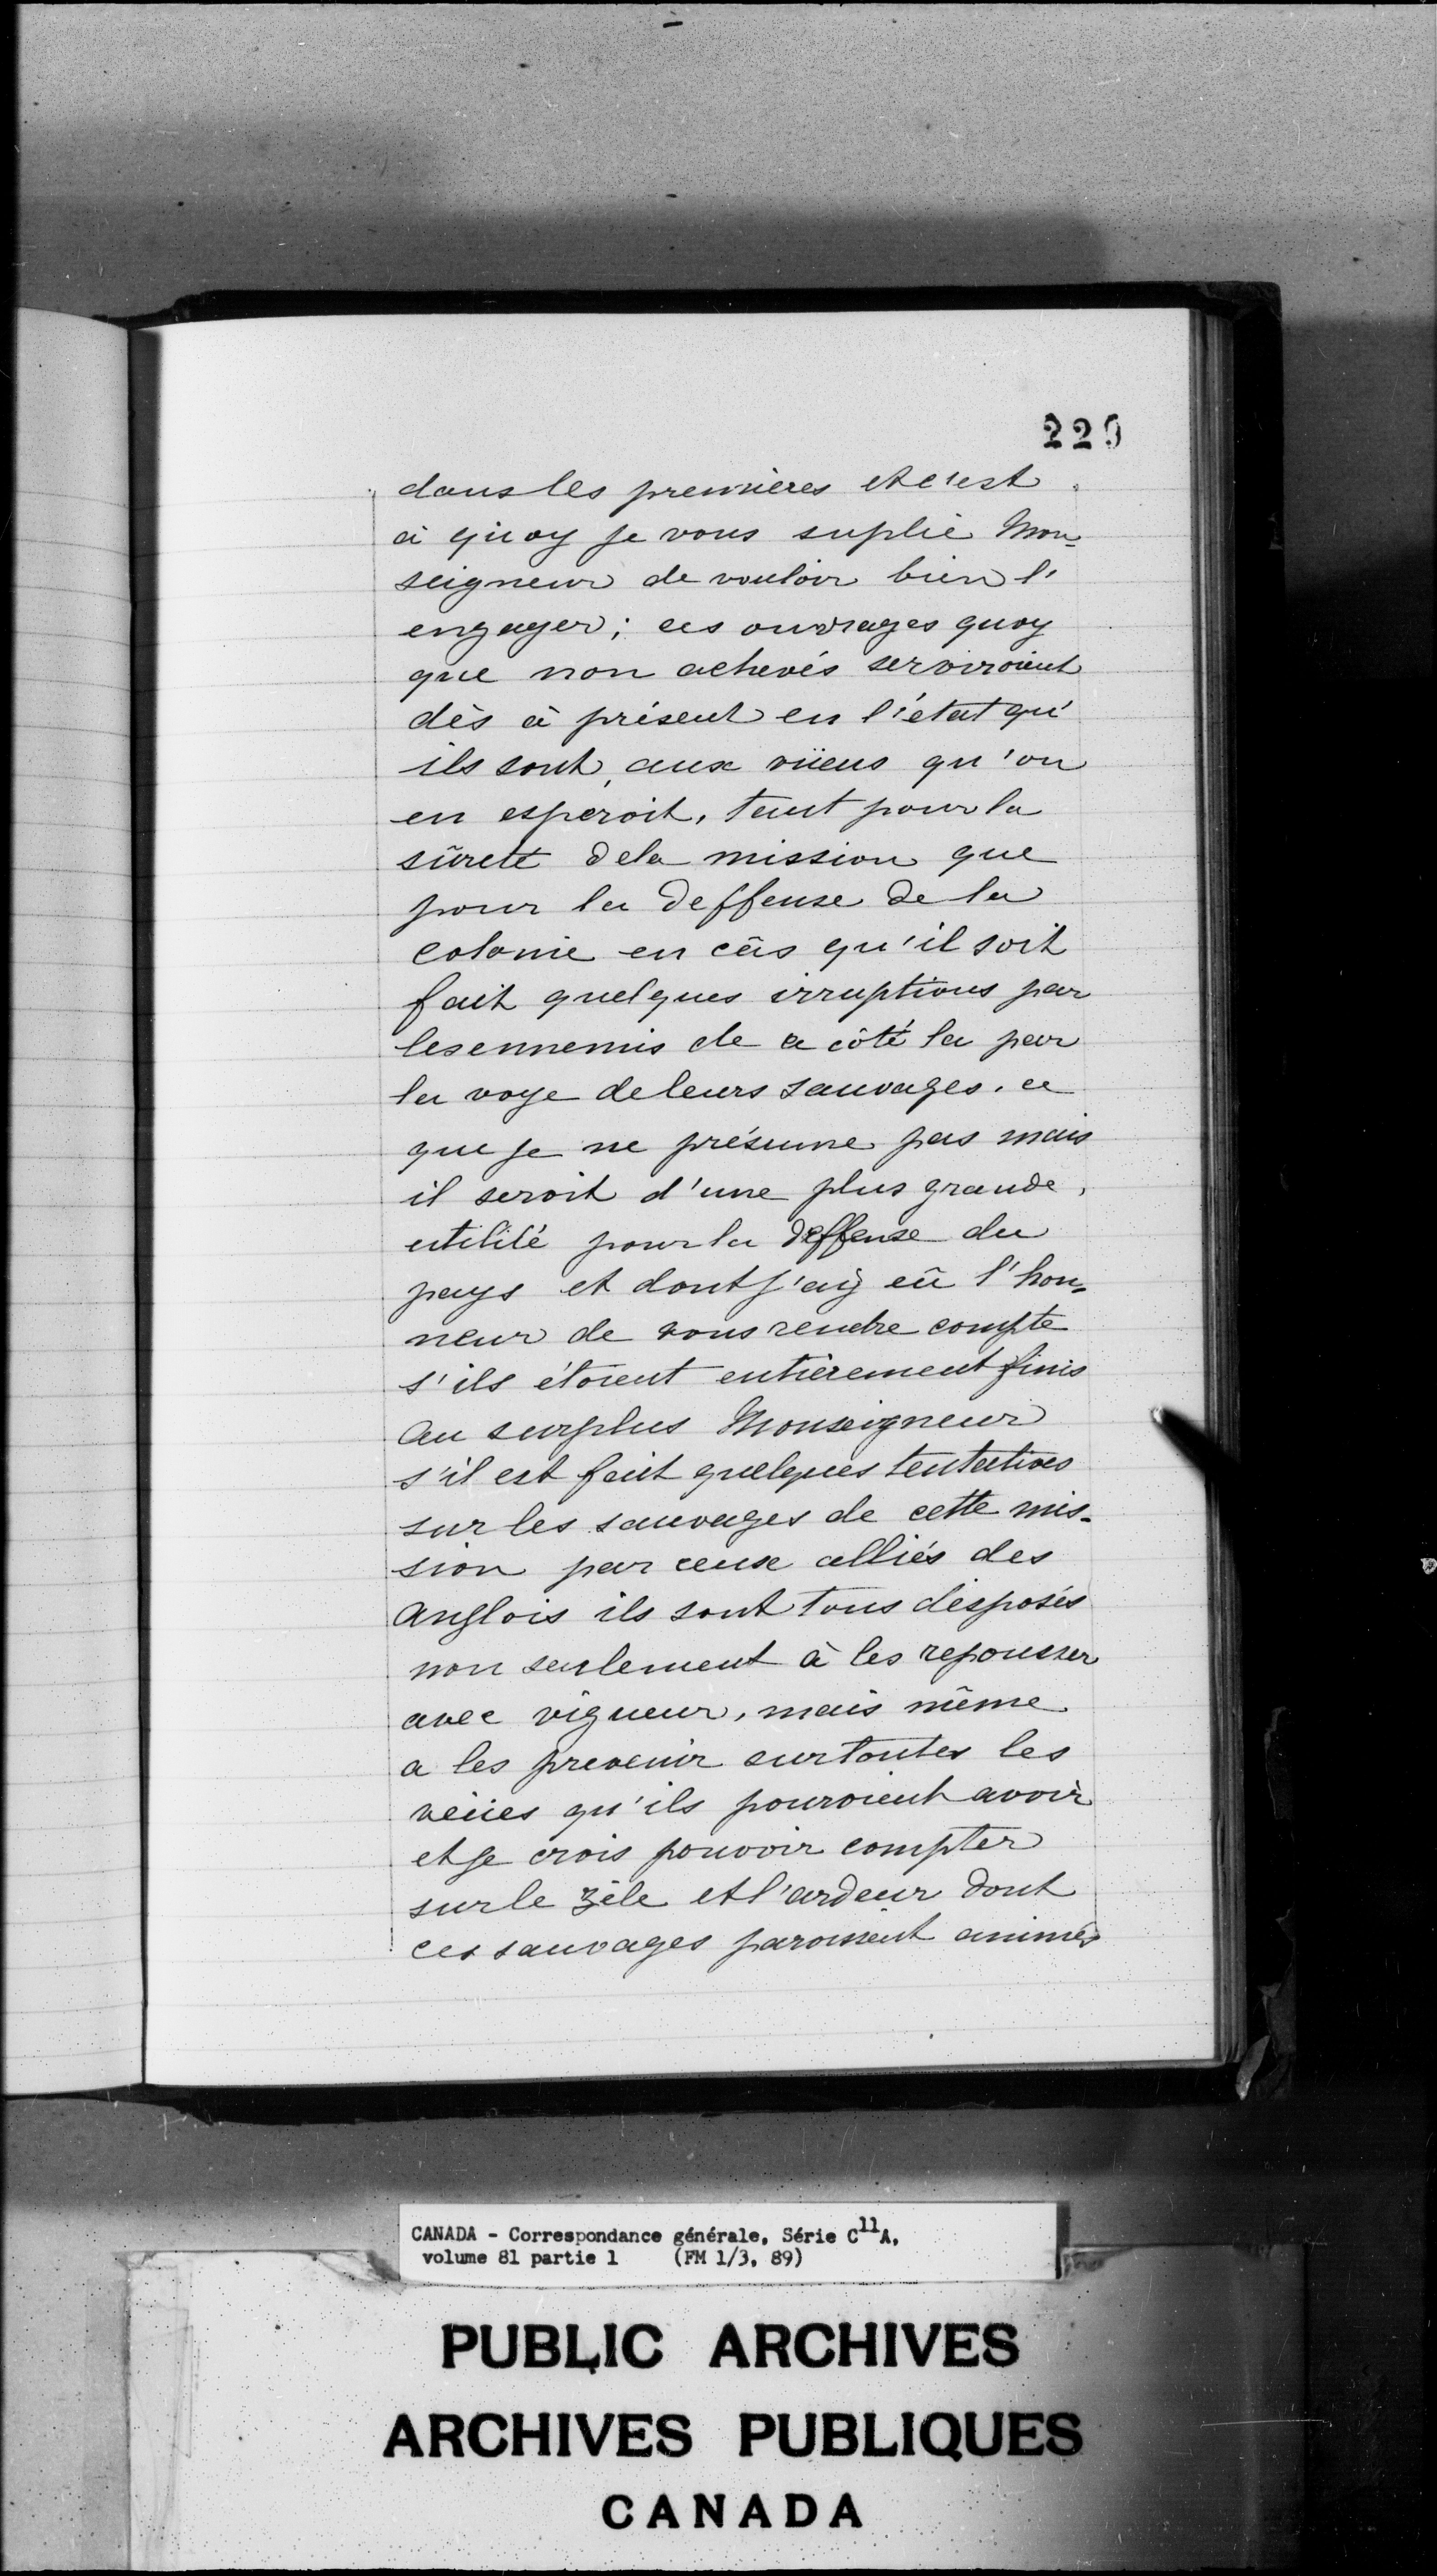 229
dans les premières et c'est
à quoy je vous suplie Mon-
seigneur de vouloir bien l'
engager; ces ouvrages quoy
que non achevés serviroient
dès à présent en l'état qu'
ils sont, aux vüeus qu'on
en esperoit, tant pour la
sûreté dela mission que
pour la deffense de la
colonie en câs qu'il soit
fait quelques irruptions par
les ennemis de ce côté la par
la voye de leurs sauvages. ce
que je ne présume pas mais
il seroit d'une plus grande,
utilité pour la deffense du
pays et dont j'aÿ eû l'hon-
neur de vous rendre compte
s'ils étoient entièrement finis
au surplus Monseigneur
s'il est fait quelques tentatives
sur les sauvages de cette mis-
sion par ceux alliés des
anglois ils sont tous disposés
non seulement à les repousser
avec vigueur, mais même
a les prevenir sur toutes les
vëües qu'ils pouroient avoir
et je crois pouvoir compter
sur le zèle et l'ardeur dont
ces sauvages paroissent animés
CANADA - Correspondance générale, Série C11A,
volume 81 partie 1 (FM 1/3, 89)
PUBLIC ARCHIVES
ARCHIVES PUBLIQUES
CANADA